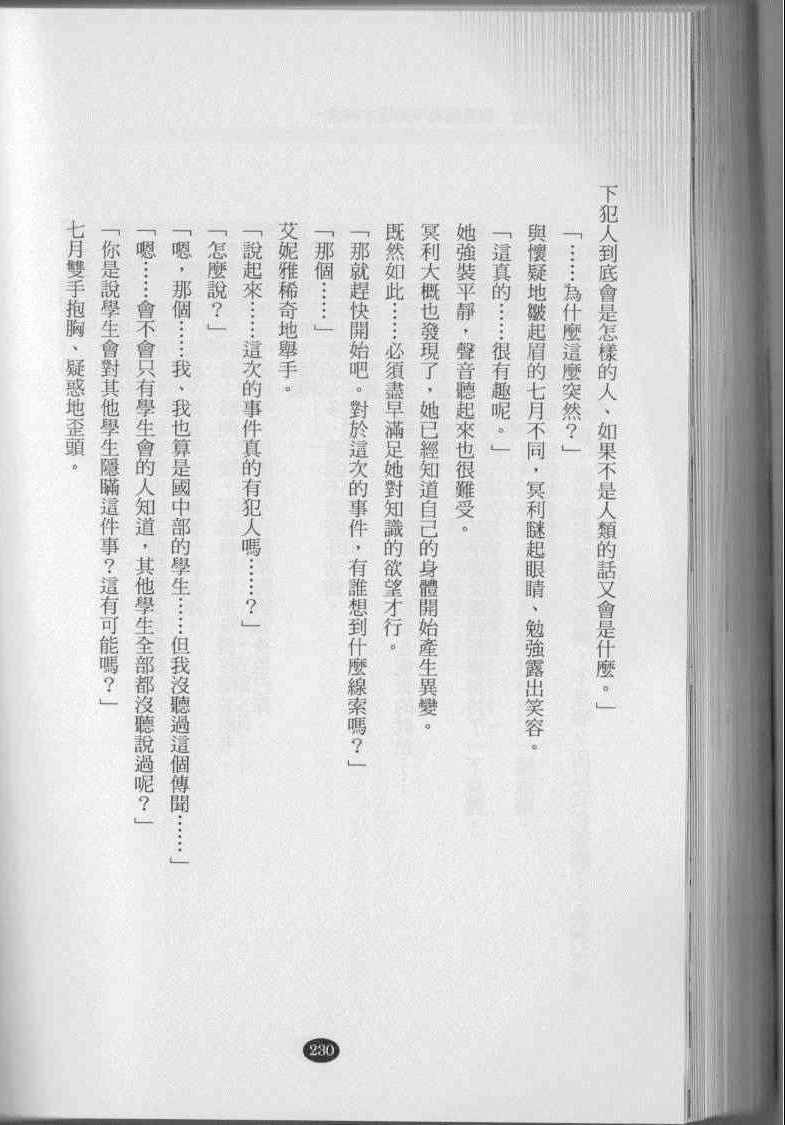 下犯人到底會是怎樣的人、如果不是人類的話又會是什麼。」
「……為什麼這麼突然？」
與懷疑地皺起眉的七月不同，冥利瞇起眼睛、勉強露出笑容。
「這真的……很有趣呢。」
她強裝平靜，聲音聽起來也很難受。
冥利大概也發現了，她已經知道自己的身體開始產生異變。
既然如此……必須盡早滿足她對知識的欲望才行。
「那就趕快開始吧。對於這次的事件，有誰想到什麼線索嗎？」
「那個……」
艾妮雅稀奇地舉手。
「說起來……這次的事件真的有犯人嗎……？」
「怎麼說？」
「嗯，那個……我、我也算是國中部的學生……但我沒聽過這個傳聞……」
「嗯……會不會只有學生會的人知道，其他學生全部都沒聽說過呢？」
「你是說學生會對其他學生隱瞞這件事？這有可能嗎？」
七月雙手抱胸、疑惑地歪頭。
230